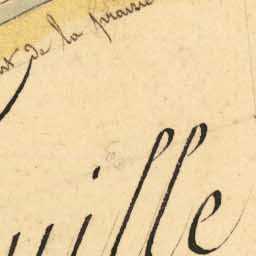 de la prairie
uille